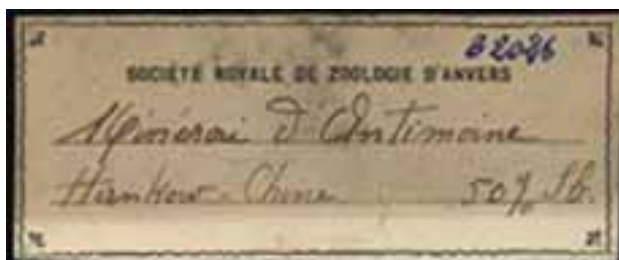 B2096
SOCIÉTÉ ROYALE DE ZOOLOGIE D'ANVERS
Minérai d'Antimoine
Hankow - Chine 50% Sb.